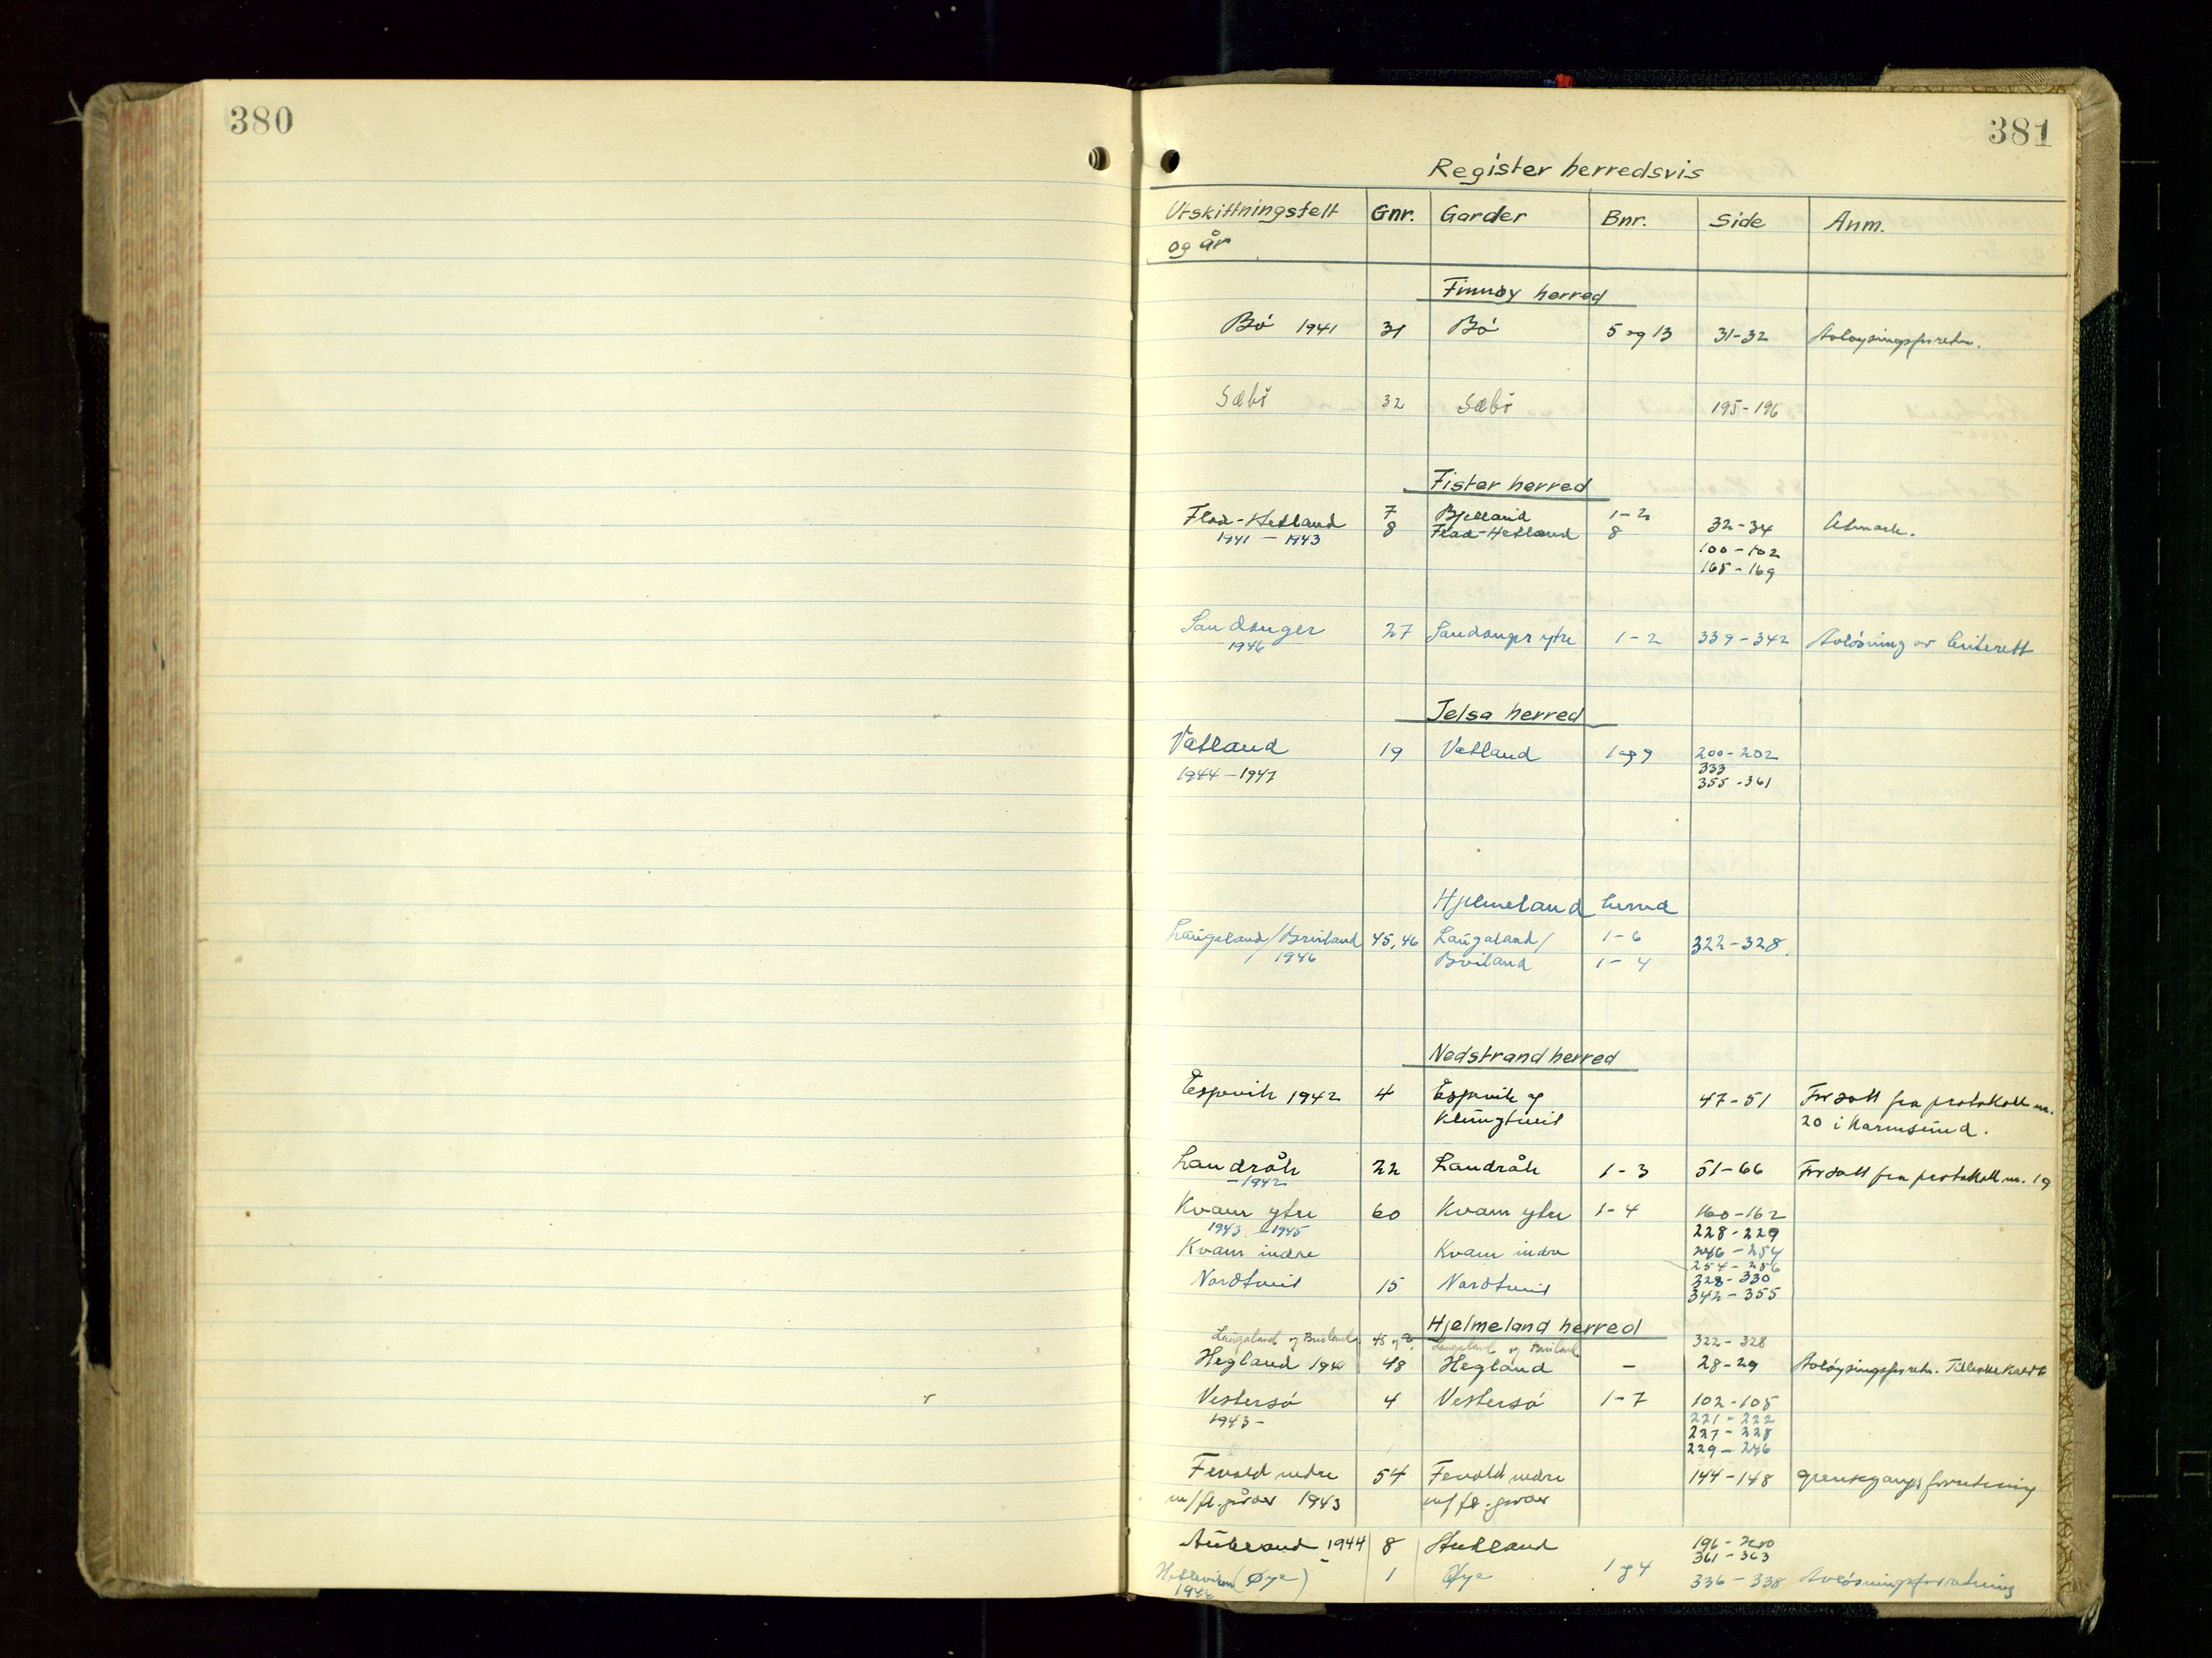 380
381
Register herredsvis
Utskiftningsfelt og år Gnr. Garder Bnr. Side Anm.
Finnøy herred
Bö 1941 31 Bö 5 og 13 31-32 Avløysingsforetn.
Sæbö 32 Sæbö 195-196
Fister herred
7 Bjelland 1-2
Flad-Hetland 8 Flad-Hetland 8 32-34 Utmark.
1941 - 1943 100-102
168-169
Sandanger 27 Sandanger ytre 1-2 339-342 Avlösning av beiterett
1946
Jelsa herred
Vatland 19 Vatland 1 og 9 200-202
1944-1947 333
355-361
Hjelmeland herred
Laugaland/Breiland 45,46 Laugaland/ 1-6 322-328.
1946 Breiland 1-4
Nedstrand herred
Espevik 1942 4 Espevik og 47-51 Forsatt fra protokoll nr.
Klungtveit 20 i Karmsund.
Landråk 22 Landråk 1-3 51-66 Forsatt fra protokoll nr. 19
-1942
Kvam ytre 60 Kvam ytre 1-4 160-162
1943-1945 228-229
Kvam indre Kvam indre 246-254
254-256
Nordtveit 15 Nordtveit 328-330
342-355
Hjelmeland herred
Laugaland og Breiland 45 og Laugaland og Breiland 322-328
Hegland 1941 48 Hegland - 28-29 Avløysingsforretn.
Vestersö 4 Vestersö 1-7 102-105
1943- 221-222
227-228
229-246
Fevold indre 54 Fevold indre 144-148 grensegangsforretning
m/fl. gårder 1943 m/fl. garder
1944 8 196-200
361-363
(Øye) 1 Øye 1 og 4 336-338 Avlösningsforretning